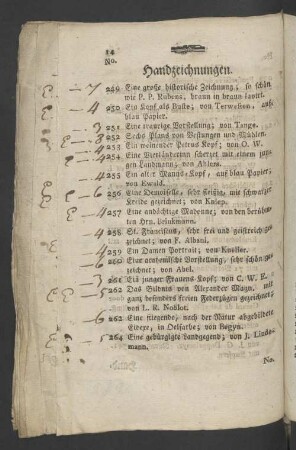 14
No.
Handzeichnungen.
E — 7 249 Eine große historische Zeichnung; so schön
wie P. P. Rubens, braun in braun lavirt.
— 4 250 Ein Kopf als Buste; von Terwesten, auf
blau Papier.
— 3 251 Eine traurige Vorstellung; von Tango.
E — 3 252 Sechs Plans von Vestungen und Mühlen.
— 4 253 Ein weinender Petrus Kopf; von O. W.
— 4 254 Eine Vierländerinn scherzet mit einem jungen
Landmann; von Ahlers.
— 4 255 Ein alter Manns-Kopf, auf blau Papier;
von Ewald.
E — 6 256 Eine Demoiselle, sehr fleißig mit schwarzer
Kreide gezeichnet; von Kniep.
E — 257 Eine andächtige Madonne; von dem berühmten
Hrn. Brinkmann.
— 4 258 St. Franciscus, sehr frei und geistreich gezeichnet;
von F. Albani.
— 4 259 Ein Damen Portrait; von Kneller.
E — 2 260 Eine arcadische Vorstellung, sehr schön gezeichnet;
von Abel.
— 3 261 Ein junger Frauens-Kopf; von C. W. E.
E E — 5 262 Das Bildnis von Alexander Magn. mit
ganz besonders freien Federzügen gezeichnet;
von L. R. Noßlot.
— 6 263 Eine fliegende, nach der Natur abgebildete
Eidexe, in Oelfarbe; von Begyn.
— 5 264 Eine gebürgigte Landgegend; von J. Lindemann.
No.